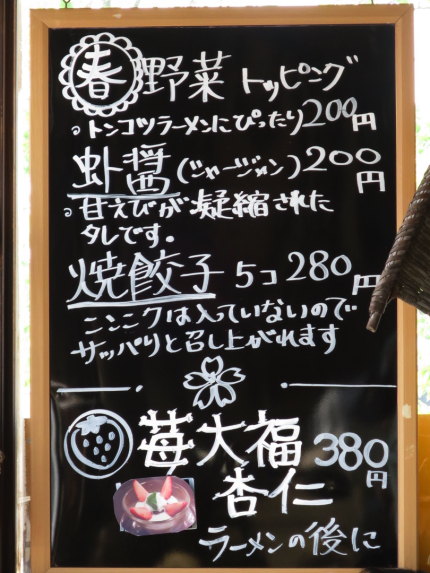 春 野菜 トッピング
。トンコツラーメンにぴったり 200円
虾醤(ジャージャン)200円
。甘えびが凝縮された
タレです。
焼餃子 5コ 280円
ニンニクは入っていないので
サッパリと召し上がれます
苺大福 380円
杏仁
ラーメンの後に